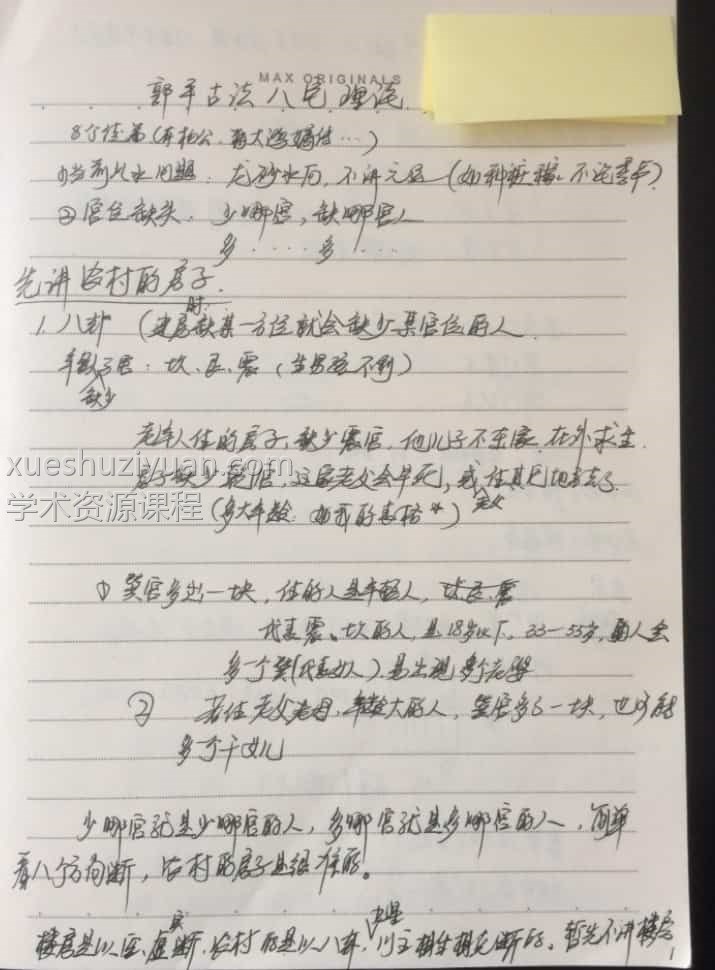 MAX ORIGINALS
郭平古法八宅理论
8个徒弟
①当前风水问题：龙砂水向，不讲元运
②宫位缺失：少哪宫，缺哪宫人
多····多····
先讲农村的房子.
1. 八卦（建房时缺某一方位就会缺少某宫位的人
缺少 坎、艮、震（生男孩不利）
老年人住的房子，缺少震宫，他儿子不在家，在外求生.
房子缺少 宫，这家老父会早死，或 老父 住其它地方去了.
xueshuziyuan.com
学术资源课程
（多大年龄
① 巽宫多出一块，住的人是年轻人，
代表震、坎的人，是18岁以下，33—55岁，的人会
多一个巽（代表女人）易出现 多个老婆
② 若住老父老母，年龄大的人，巽宫多了一块，也可能
多个干女儿
少哪宫就是少哪宫的人，多哪宫就是多哪宫的人，简单
看八个方向断，农村的房子是很准的。
楼房是以 虚实断，农村的是以八卦，九星 断的。暂先不讲楼房
1